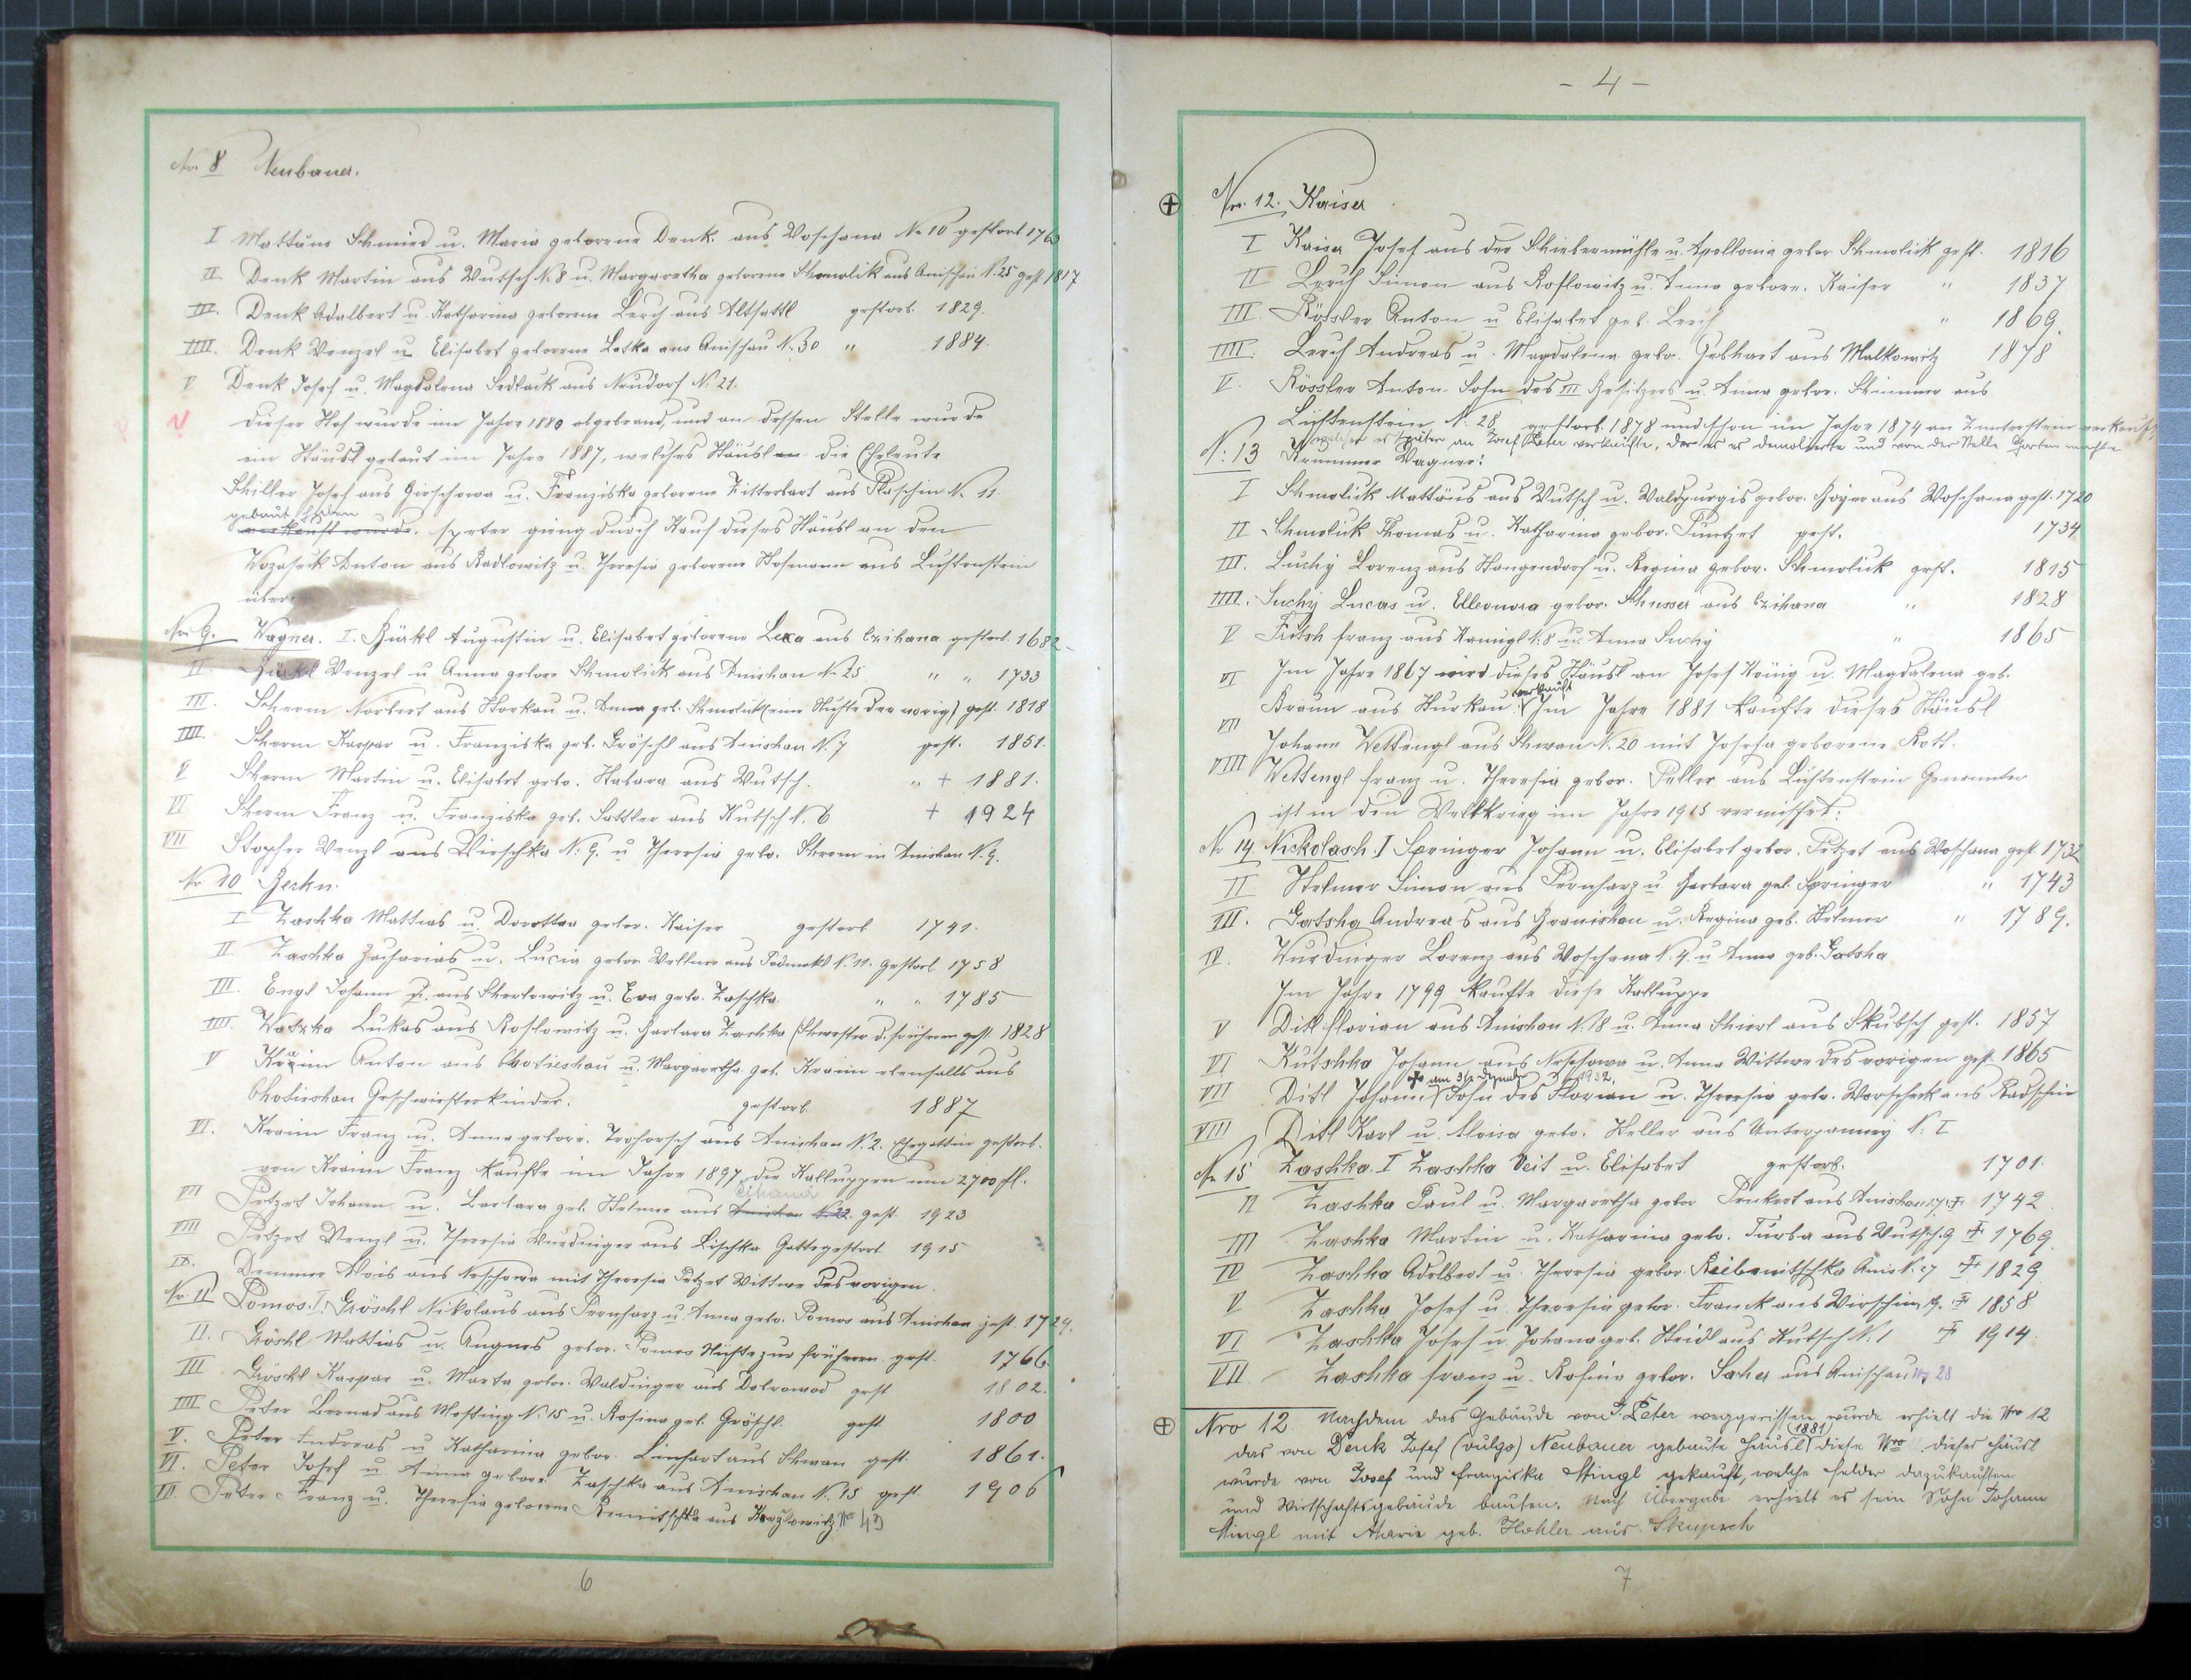 Nr. 8 Neubauer.
I Mattäus Schmied u. Maria geborene Denk. aus Woschana N. 10 gestorb 1763
II Denk Martin aus Wutsch N. 8 u. Margaretha geborene Schmolik aus Anischau N. 25 gest 1817
III. Denk Adalbert u. Katharina geborene Lerch aus Altsattl gestorb. 1829.
IIII. Denk Wenzel u. Elisabet geborene Letka aus Anischau N. 30 " 1884.
V Denk Josef u. Magdalena Sedlack aus Neudorf N. 21.
dieser Hof wurde im Jahre 1880 abgebrand, und an dessen Stelle wurde
ein Häusl gebaut im Jahre 1887, welches Häusl an die Eheleute
Schiller Josef aus Girschowa u. Franziska geborene Zitterbart aus Plaschin N. 11.
gebaut haben
verkauft wurde. speter gieng durch Kauf dieses Häusl an den
Wozasek Anton aus Radlowitz u. Theresia geborene Hofmann aus Lichtenstein
über.
Nr. 9. Wagner. I. Bürkl Augustin u. Elisabet geborene Lexa aus Czihana gestorb. 1682
II. Bürkl Wenzel u Anna gebore Schmolick aus Anischau N. 25 " " 1733
III. Scherm Norbert aus Horkau u. Anna geb. Schmolick (eine Nichte der vorig) gest. 1818
IIII. Scherm Kaspar u. Franziska geb. Gröschl aus Anischau N. 7 gest. 1851.
V Scherm Martin u. Elisabet gebo. Habara aus Wutsch. " + 1881.
VI Scherm Franz u. Franziska geb. Sattler aus Kutsch N. 6 + 1924
VII Stopfer Wenzl aus Wirschka N. 9. u Theresia gebo. Scherm in Anischau N. 9.
Nr 10 Beckn.
I Zaschka Mattias u. Dorottea gebor. Kaiser gestorb 1741.
II Zaschka Zacharias u. Lucia gebor. Wellner aus Podmokl N. 11. gestorb. 1758
III. Engl Johann aus Scherlowitz u. Eva gebo. Zaschka. " " 1785
IIII. Watzka Lukas aus Koslowitz u. Barbara Zaschka (Schwester d. früheren gest. 1828
V Kraim Anton aus Chotieschau u. Margaretha geb. Kraim ebenfalls aus
Chotieschau Geschwisterkinder. gestorb. 1887
VI. Kraim Franz u. Anna gebore. Trohorsch aus Anischau N. 2. Ehegattin gestorb.
von Kraim Franz kaufte im Jahre 1897 die Kalluppen um 2700 fl.
Cihana
VII Petzet Johann u. Barbara geb. Helmer aus Anischau N. 22. gest. 1923
VIII Petzet Wenzl u. Theresia Würdinger aus Lischka Gattegestorb 1915
IX. Demmer Alois aus Neschowa mit Theresia Petzet Wittwe des vorigen.
Nr. 11 Pomos. I. Gröschl Nikolaus aus Pernharz u. Anna gebo. Pomos aus Anischau gest. 1724.
II. Gröschl Mattias u. Augnes gebor. Pomos Nichte zur früheren gest. 1766.
III Gröschl Kaspar u. Marta gebor. Waldinger aus Dobrowod gest 1802.
IIII Peter Bernad aus Mosting N. 15 u. Rosina geb. Gröschl. gest 1800
V. Peter Andreas u Katharina gebor. Linhart aus Schwan gest. 1861.
VI. Peter Josef u Anna gebore. Zaschka aus Anischau N. 15 gest. 1906
VII. Peter Franz u. Theresia geborene Remitschka aus Kozlowitz Nro 43
6
- 4 -
Nr. 12. Kaiser
I Kaiser Josef aus der Schiebermühle u. Apollonia gebor Schmolick gest. 1816
II Lerch Simon aus Koslowitz u. Anna gebore. Kaiser " 1837
III. Rössler Anton u Elisabet geb. Lerch " 1869.
IIII. Lerch Andreas u. Magdalena gebo. Gebhart aus Malkowitz 1878
V. Rössler Anton Sohn des III Besitzers u. Anna gebor. Schimmer aus
Lichtenstein N. 28 gestorb 1878 und schon im Jahre 1874 an Zunterstein verkauft
welcher es später an Josef Peter verkaufte, der es demolierte und von der Stelle Garten machte
N: 13 Krummer Wagner:
I Schmolick Mattäus aus Wutsch u. Waldpurgis gebor. Boyer aus Woschana gest. 1720
II Schmolick Thomas u. Katharina gebor. Puntzet gest. 1734
III. Luchy Lorenz aus Hangendorf u. Regina gebor. Schmolick gest. 1815
IIII. Suchy Lucas u. Elleonora gebor. Schusser aus Czihana " 1828
V Fritsch franz aus Ramigl N. 8 u. Anna Suchy " 1865
VI Im Jahre 1867 wird dieses Häusl an Josef König u. Magdalena geb.
verkauft
Braun aus Hurkau. Im Jahre 1881 kaufte dieses Häusl
VII Johann Wettengl aus Schwan N. 20 mit Josefa geborene Roth.
VIII Wettengl franz u. Theresia gebor. Peller aus Lichtenstein Genannter
ist in den Weltkrieg im Jahre 1915 vermisset:
Nr 14. Nickolasch. I Springer Johann u. Elisabet gebor. Petzet aus Woschana gest. 1732
II Helmer Simon aus Pernharz u. Barbara geb. Springer " 1743
III. Gatscha Andreas aus Granischau u. Regina geb. Helmer " 1789.
IV. Wurdinger Lorenz aus Woschana N. 9. u Anna geb. Gatscha
Im Jahre 1799 kaufte diese Kalluppe
V Ditl florian aus Anischau N. 18 u. Anna Schierl aus Skubsch gest. 1857
VI Kutschka Johann aus Neschowa u. Anna Wittwe des vorigen gest. 1865
+ am 31. Dezember 1932.
VII Ditl Johann Sohn des Florian u. Theresia gebo. Worscheck aus Radschin
VIII Ditl Karl u. Aloisa gebo. Heller aus Unterjamney N: I
Nr. 15 Zaschka. I Zaschka Veit u. Elisabet gestorb. 1701.
II Zaschka Paul u. Margaretha gebor Penkert aus Anischau 17. + 1742.
III Zaschka Martin u. Katharina gebo. Turba aus Wutsch. 9 + 1769.
IV Zaschka Adelbert u. Theresia gebor. Reibenitschka Anis N. 27 + 1829
V Zaschka Josef u. Theresia gebor. Franck aus Wirschin 19. + 1858
VI Zaschka Josef u. Johana geb. Heidl aus Kutsch N. 1 + 1914.
VII Zaschka franz u. Rosina gebor. Sacher aus Anischau No 28
Nro 12. Nachdem das Gebäude von J. Peter weggerissen wurde erhielt die Nro 12
(1881)
das von Denk Josef (vulgo) Neubauer gebaute Häusl diese Nro dieses Häusl
wurde von Josef und franziska Stingl gekauft, welche Felder dazukauften
und Wirtschaftsgebäude bauten. Nach Übergabe erhielt es sein Sohn Johann
Stingl mit Marie geb. Hohler aus Skupsch
7